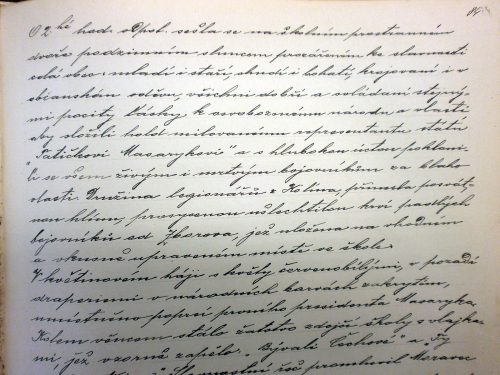 O 2hé hod. odpol. sešla se na školním prostranném
dvoře podzimním sluncem prozářeném ke slavnosti
celá obec: mladí i staří, chudí i bohatí, krojovaní i v
občanském oděvu, všichni dobří a ovládaní stejný-
mi pocity lásky k osvobozenému národu a vlasti
aby složili hold milovanému representantu státu
"Tatíčkovi Masarykovi" a s hlubokou úctou pokloni-
li se všem živým i mrtvým bojovníkům za blaho
vlasti. Družina legionářů z Kolína, přinesla posvát-
nou hlínu, prosycenou ušlechtilou krví padlých
bojovníků od Zborova, jež uložena na vhodném
a vkusně upraveném místě ve škole.
V květinovém háji s květy červenobílými, v pozadí
draperiemi v národních barvách zakrytém,
umístěno poprsí prvního presidenta Masaryka.
Kolem věncem stálo žactvo zdejší školy s vlajka-
mi, jež vzorně zapělo "Bývali Čechové" a "Ty
Slavnostní řeč promluvil